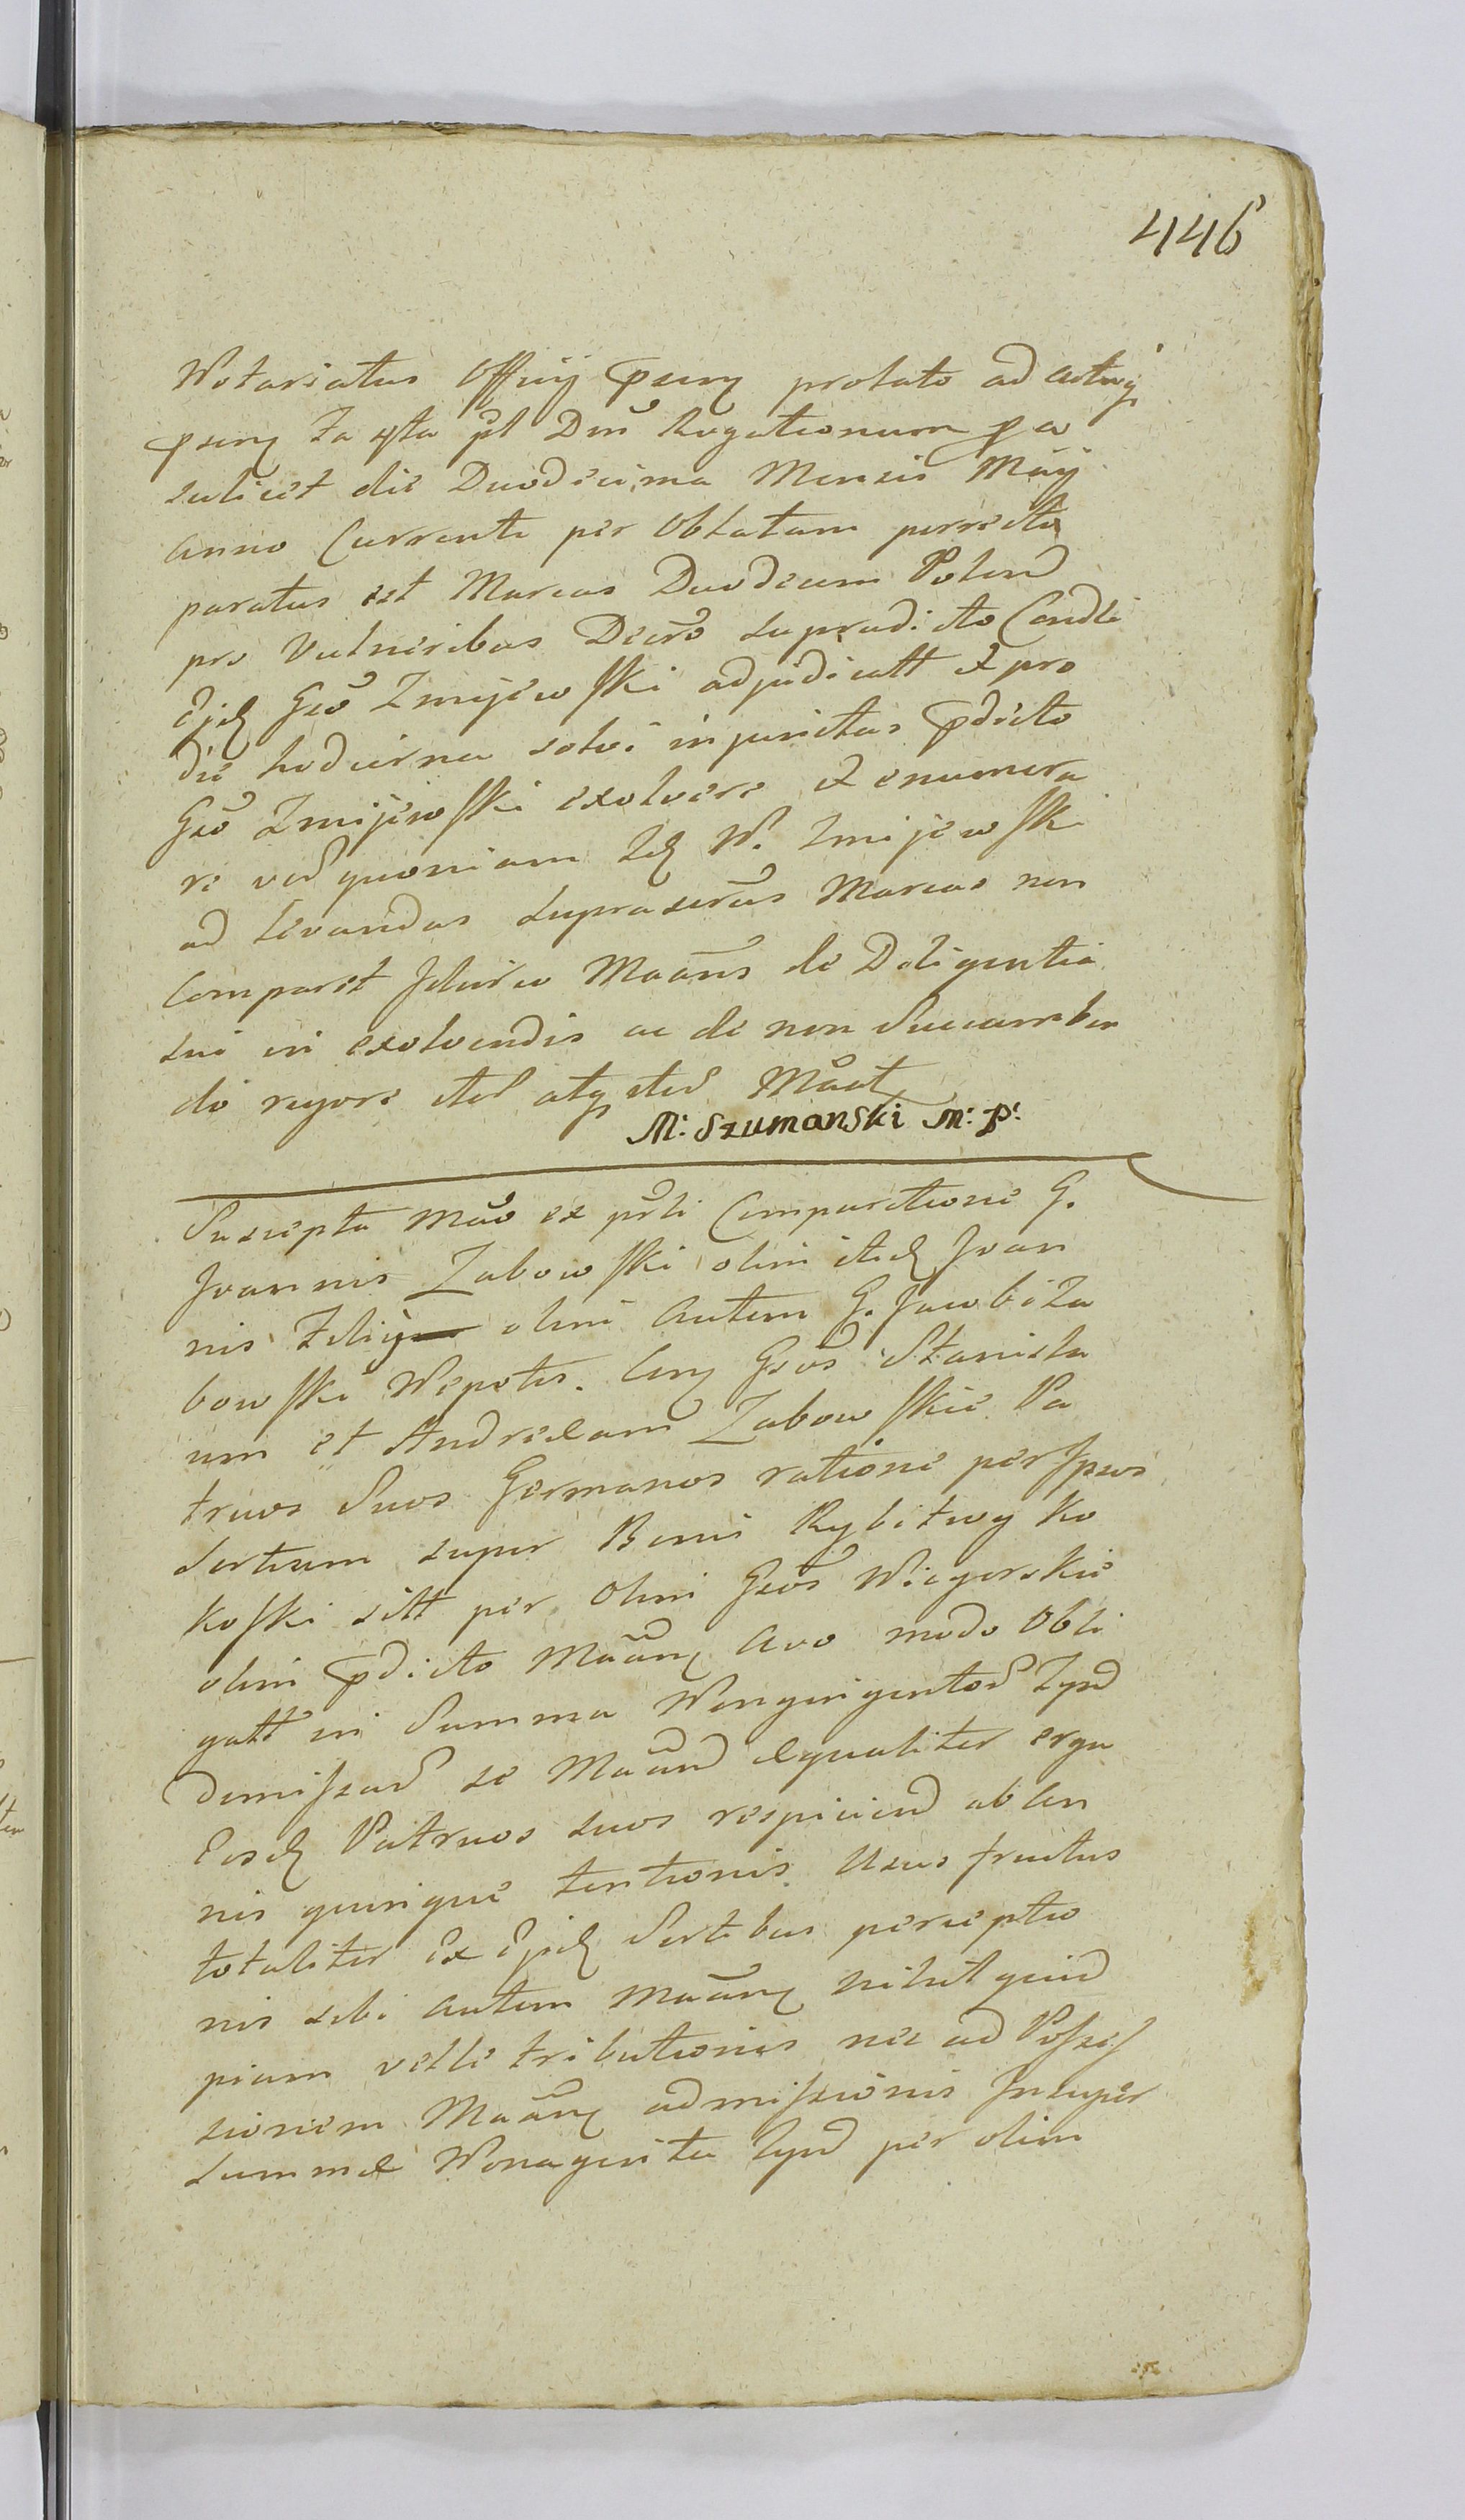 446
Notariatus Offiij pseng prolato ad acta
pseng fa 4ta pt Dm̃ Rogationum pa
scilicet die Duodecima Mensis Maij
anno Currenti per Oblatam porrecto
paratus est Marcas Duodecim Polond
pro Vulneribus Decro supradicto Condli
Ejd Gso Zmijewski adjudicatt et pro
die hodierna solvi injunctas pdicto
Gso Zmijewski exolvere et enumera
re ved quoniam Id N. Zmijewski
ad levandas suprascras Marcas non
Comparet Idcirco Maans de Diligentia
sui in exolvendis ac de non Succumben
do rigore itd atq itd Maat
M: Szumanski m: p:
Suscepta Mao ex prti Comparitione G.
Joannis Zabowski olim itid Joan
nis Filij olim autem G. Jacobi Za
bowski Nepotis. Cum Gsos Stanisla
um et Andream Zabowskie Pa
truos Suos Germanos ratione per Ipsos
Sortium super Bonis Rybitwy Ko
koski sitt per Olim Gsos Wiegerskie
olim pdicto Maang Avo modo Obli
gatt in Summa Nongingentod Zpnd
Dimissad se Maand aequaliter erga
Eosd Patruos suos respiciend ab An
nis quinque tentionis Usus fructus
totaliter Ex Ejsd Sortibus perceptio
nis sibi autem Maang nihil quid
piam velle tributionis nec ad Posses
sionem Maang admissionis Insuper
Summae Nonaginta Zpnd per olim